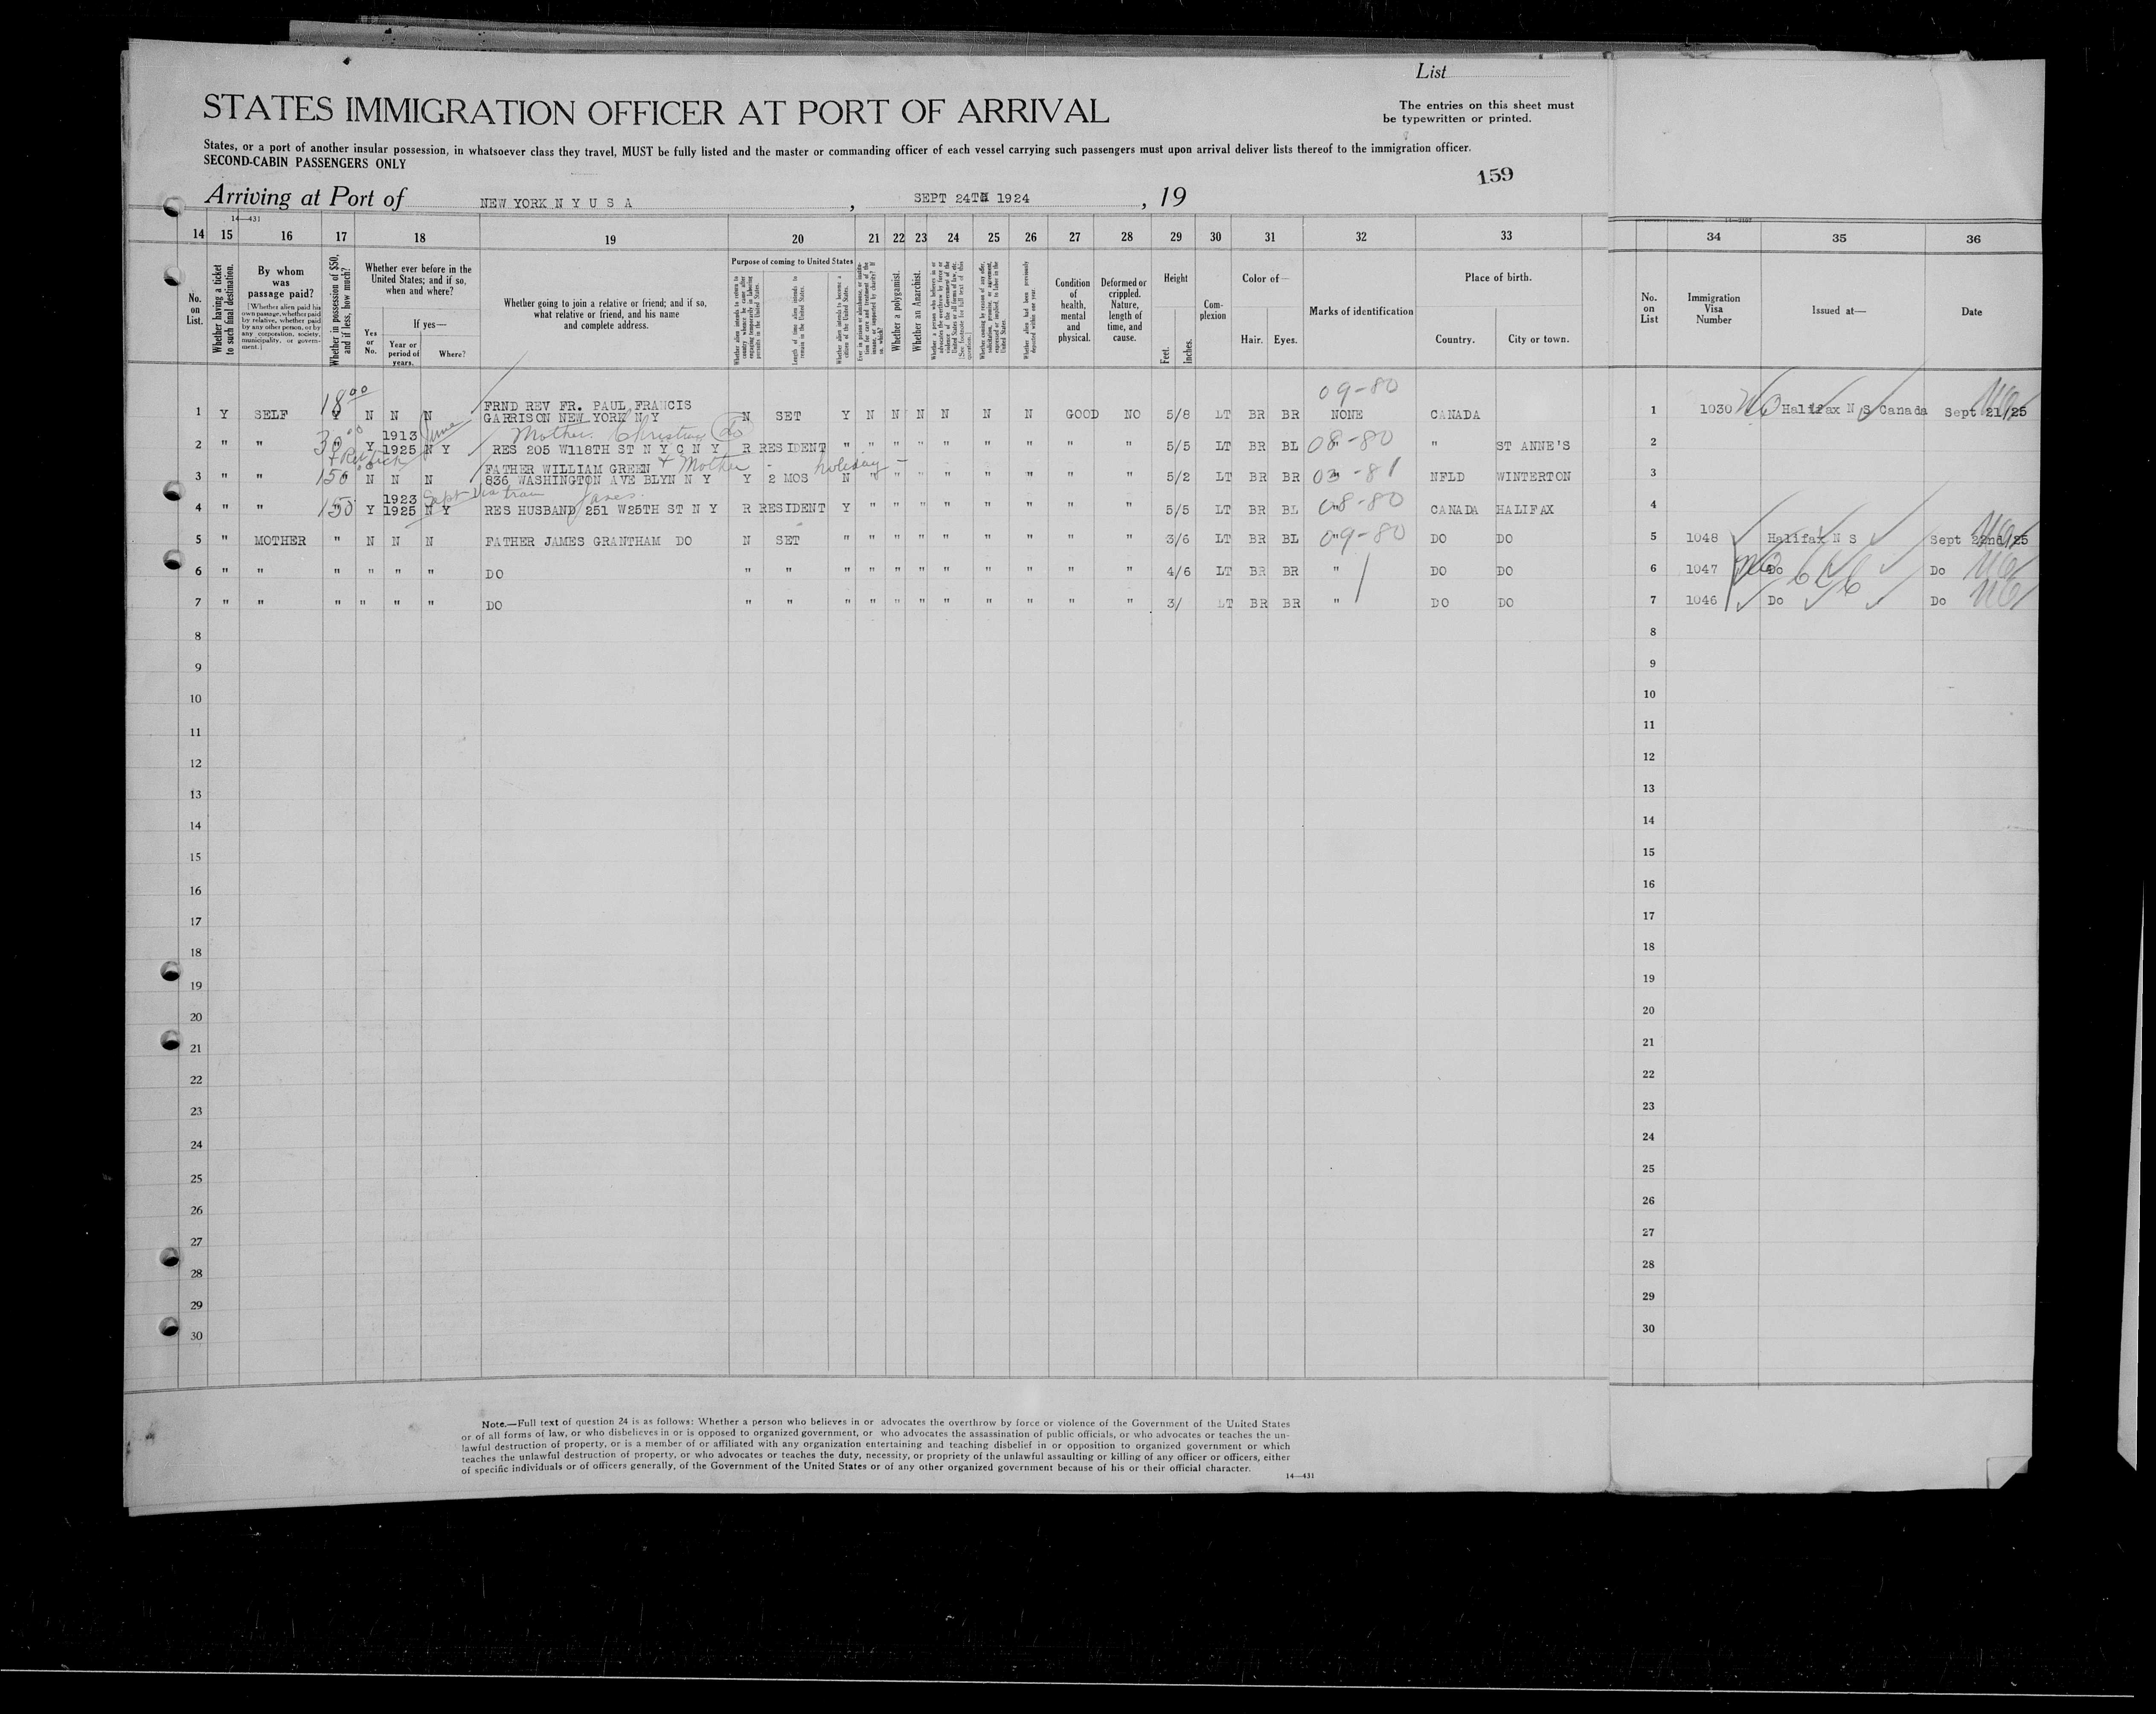 List
STATES IMMIGRATION OFFICER AT PORT OF ARRIVAL
The entries on this sheet must
be typewritten or printed.
States, or a port of another insular possession, in whatsoever class they travel, MUST be fully listed and the master or commanding officer of each vessel carrying such passengers must upon arrival deliver lists thereof to the immigration officer.
SECOND-CABIN PASSENGERS ONLY
159
Arriving at Port of NEW YORK N Y U S A , SEPT 24TH 1924 , 19
14—431
14 15 16 17 18 19 20 21 22 23 24 25 26 27 28 29 30 31 32 33 34 35 36
No. on List.
Whether having a ticket to such final destination.
By whom was passage paid?
[Whether alien paid his own passage, whether paid by relative, whether paid by any other person, or by any corporation, society, municipality, or government.]
Whether in possession of $50, and if less, how much?
Whether ever before in the United States; and if so, when and where?
Yes or No.
If yes—
Year or period of years.
Where?
Whether going to join a relative or friend; and if so, what relative or friend, and his name and complete address.
Purpose of coming to United States
Length of time alien intends to remain in the United States.
Whether alien intends to become a citizen of the United States.
Whether a polygamist.
Whether an Anarchist.
Whether alien had been previously deported within one year.
Condition of health, mental and physical.
Deformed or crippled. Nature, length of time, and cause.
Height
Feet.
Inches.
Complexion
Color of—
Hair.
Eyes.
Marks of identification
Place of birth.
Country.
City or town.
No. on List
Immigration Visa Number
Issued at—
Date
18 00
09-80
FRND REV FR. PAUL FRANCIS
1 Y SELF Y N N N GARRISON NEW YORK N Y N SET Y N N N N N N GOOD NO 5/8 LT BR BR NONE CANADA 1 1030 Halifax N S Canada Sept 21/25
30 00 1913 June Mother. Christina
2 " " " Y 1925 N Y RES 205 W118TH ST N Y C N Y R RESIDENT " " " " " " " " " 5/5 LT BR BL " 08-80 " ST ANNE'S 2
FATHER WILLIAM GREEN + Mother - holiday -
3 " " 150 00 N N N 836 WASHINGTON AVE BLYN N Y Y 2 MOS N " " " " " " " " 5/2 LT BR BR " 03-81 NFLD WINTERTON 3
1923 Sept via train James.
4 " " 150 Y 1925 N Y RES HUSBAND 251 W25TH ST N Y R RESIDENT Y " " " " " " " " 5/5 LT BR BL " 08-80 CANADA HALIFAX 4
5 " MOTHER " N N N FATHER JAMES GRANTHAM DO N SET " " " " " " " " " 3/6 LT BR BL " 09-80 DO DO 5 1048 Halifax N S Sept 22nd/25
6 " " " " " " DO " " " " " " " " " " " 4/6 LT BR BR " DO DO 6 1047 Do Do
7 " " " " " " DO " " " " " " " " " " " 3/ LT BR BR " DO DO 7 1046 Do Do
8 8
9 9
10 10
11 11
12 12
13 13
14 14
15 15
16 16
17 17
18 18
19 19
20 20
21 21
22 22
23 23
24 24
25 25
26 26
27 27
28 28
29 29
30 30
Note.—Full text of question 24 is as follows: Whether a person who believes in or advocates the overthrow by force or violence of the Government of the United States
or of all forms of law, or who disbelieves in or is opposed to organized government, or who advocates the assassination of public officials, or who advocates or teaches the un-
lawful destruction of property, or is a member of or affiliated with any organization entertaining and teaching disbelief in or opposition to organized government or which
teaches the unlawful destruction of property, or who advocates or teaches the duty, necessity, or propriety of the unlawful assaulting or killing of any officer or officers, either
of specific individuals or of officers generally, of the Government of the United States or of any other organized government because of his or their official character.
14—431